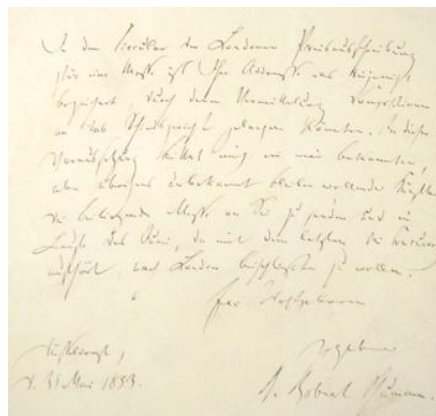 In dem Circular der Londoner Preisausschreibung
für eine Messe ist Ihre Addresse als diejenige
bezeichnet, durch deren Vermittelung Compositionen
an das Schiedsgericht gelangen könnten. In dieser
Voraussetzung bittet mich ein mir bekannter,
aber übrigens unbekannt bleiben wollender Künstler
die beiliegende Messe an Sie zu senden und im
Laufe des Juni, da mit dem letzten die Concurrenz
aufhört, nach London befördern zu wollen.
Ew. Hochgeboren
Düsseldorf,
ergebener
d. 31 Mai 1853.
Dr. Robert Schumann.